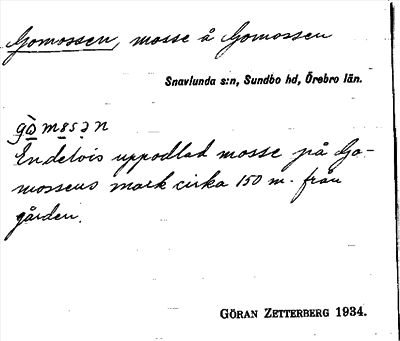 Gomossen, mosse å Gomossen
Snavlunda s:n, Sundbo hd, Örebro län.
En delvis uppodlad mosse på Go-
mossens mark cirka 150 m. från
gården.
GÖRAN ZETTERBERG 1934.